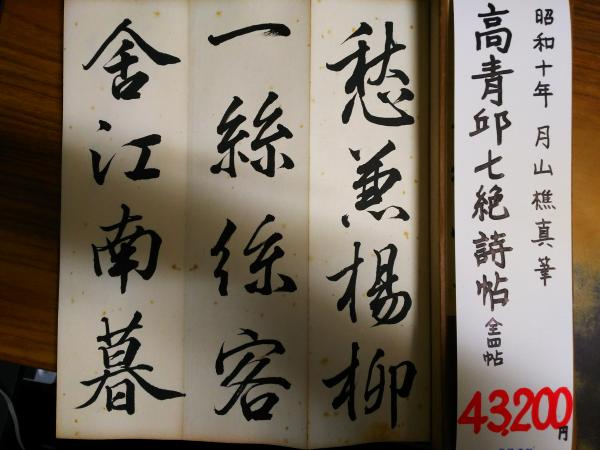 昭和十年 月山樵真筆
高青邱七絶詩帖 全四帖
43,200円
愁兼楊柳
一絲絲客
舍江南暮